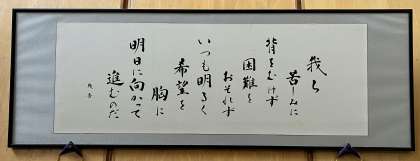 我ら
苦しみに
背をむけず
困難を
おそれず
いつも明るく
希望を
胸に
明日に向かって
進むのだ